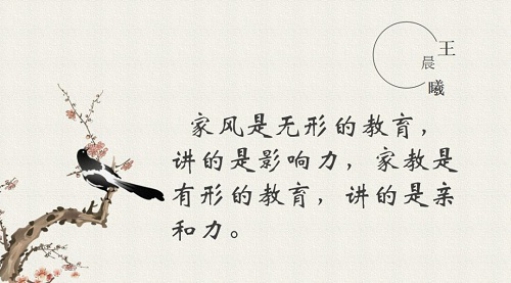 王
晨
曦
家风是无形的教育，
讲的是影响力，家教是
有形的教育，讲的是亲
和力。